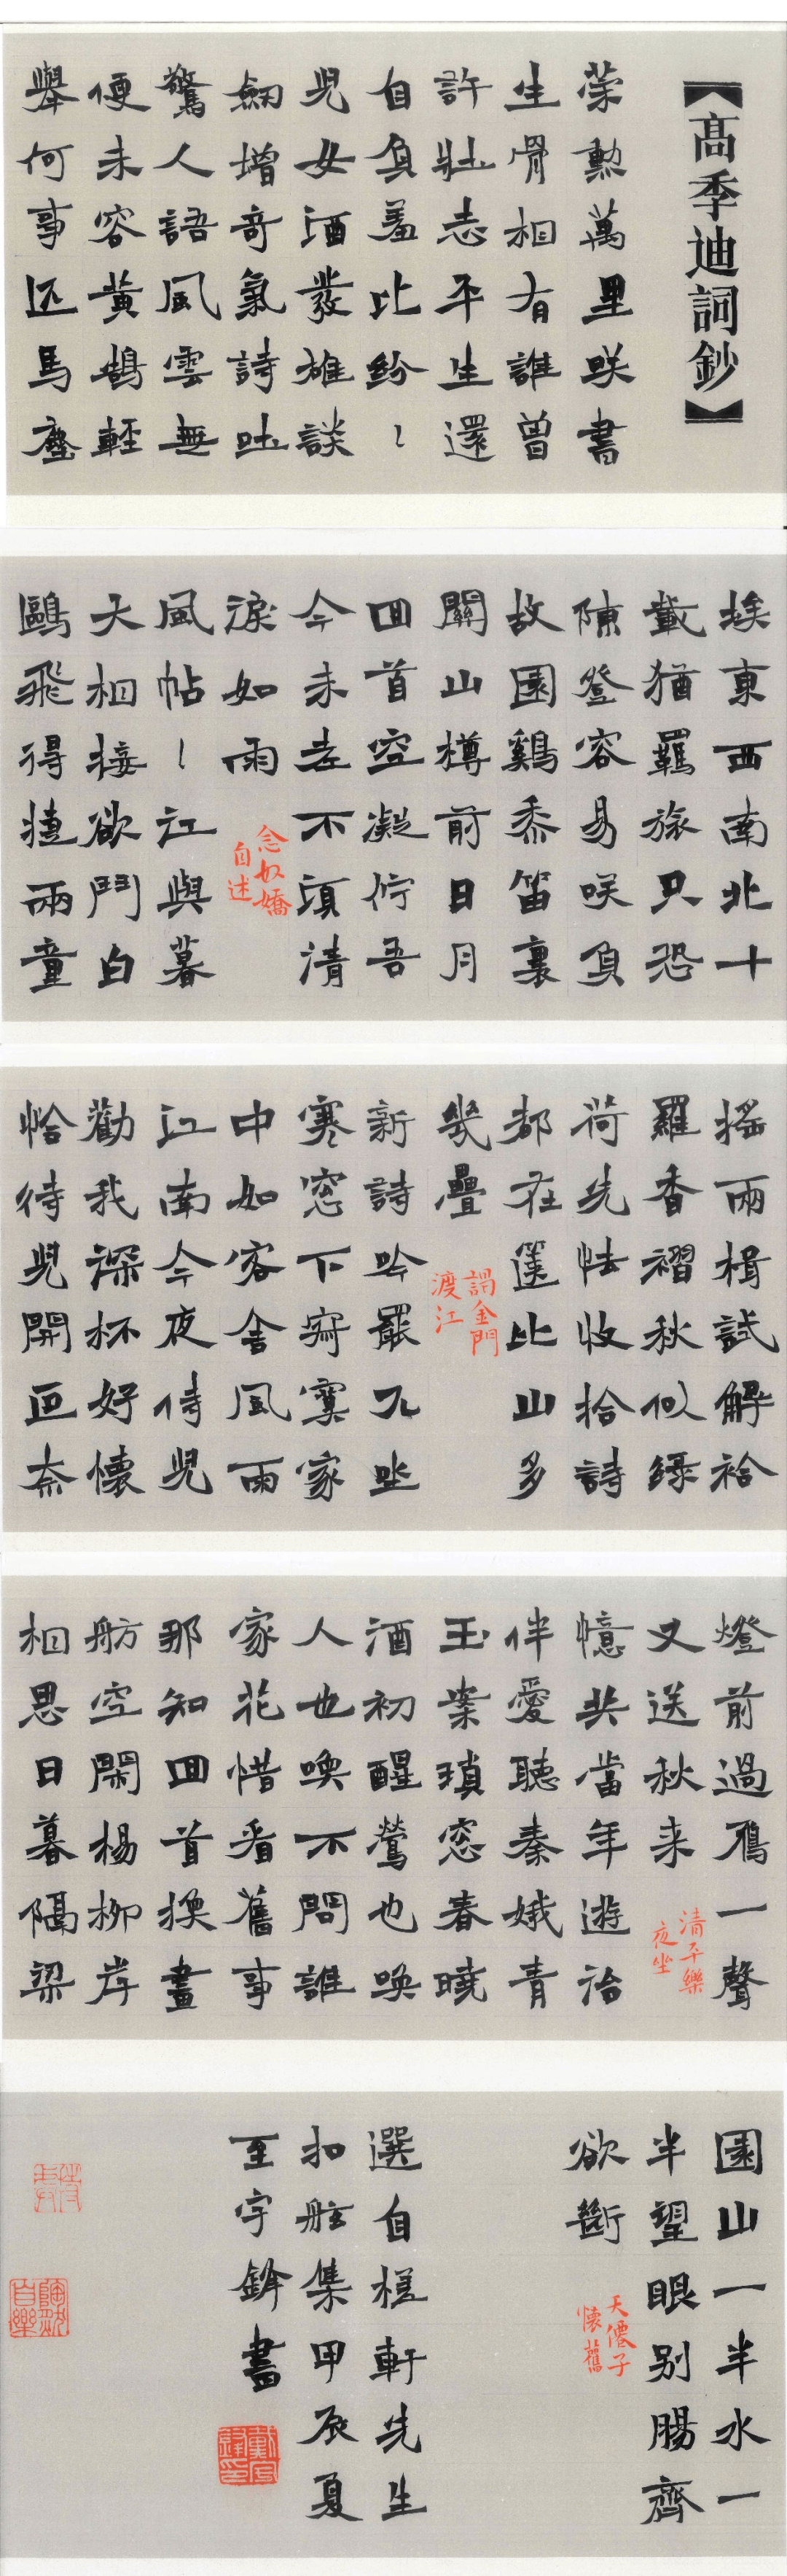 【高季迪詞鈔】
策勲萬里咲書
生骨相有誰曾
許壯志平生還
自負羞比紛〻
児女酒發雄談
劒增奇氣詩吐
驚人語風雲無
便未容黃鵠輕
舉何事匹馬塵
埃東西南北十
載猶羈旅只恐
陳登容易咲負
故園鷄黍笛裏
關山樽前日月
回首空凝佇吾
今未老不須清
淚如雨
念奴嬌
自述
風帖〻江與暮
天相接欲鬥白
鷗飛得捷兩童
搖兩楫試解袷
羅香褶秋似緑
荷先怯收拾詩
都在篋比山多
幾疊
謁金門
渡江
新詩吟罷兀坐
寒窓下寂寞家
中如客舍風雨
江南今夜侍児
勸我深杯好懷
恰待児開叵奈
燈前過鴈一聲
又送秋来
清平樂
夜坐
憶共當年遊冶
伴愛聽秦娥青
玉案瑣窓春曉
酒初醒鶯也喚
人也喚不問誰
家花惜看舊事
那知回首換畫
舫空閑楊柳岸
相思日暮隔梁
園山一半水一
半望眼别腸齊
欲斷
天僊子
懷舊
選自槎軒先生
扣舷集甲辰夏
至宇鋒書